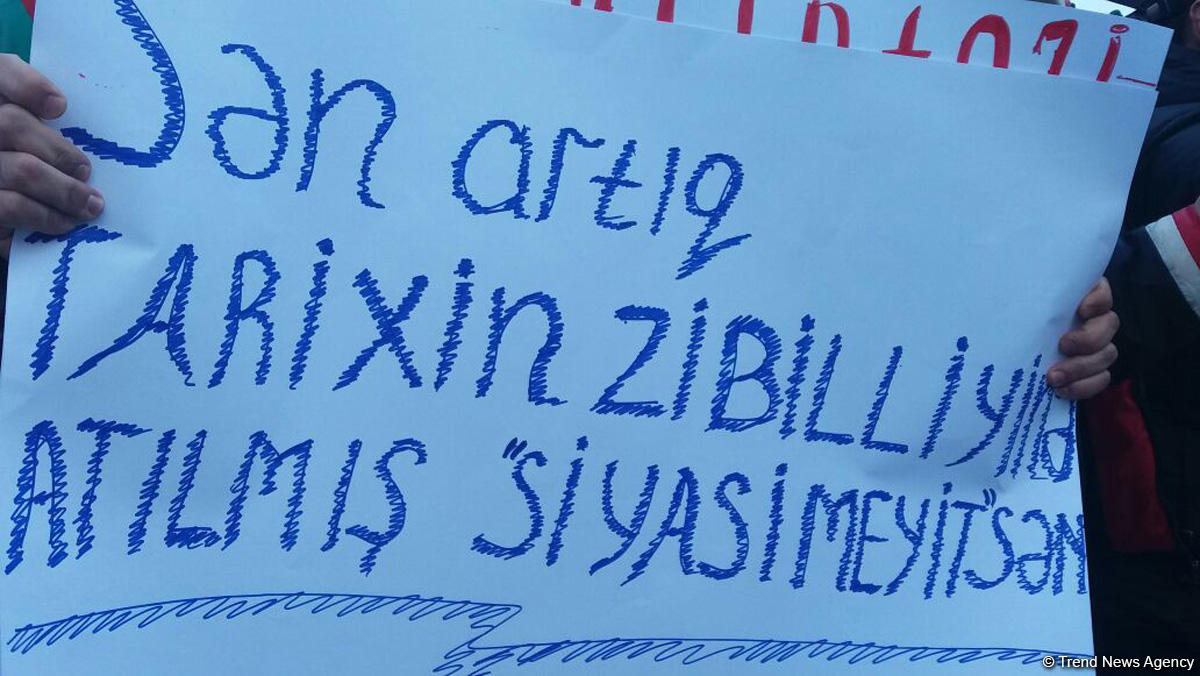 Sən artıq
TARİXİN ZİBİLLİYİNə
ATILMIŞ "SİYASİ MEYİT"SəN
© Trend News Agency